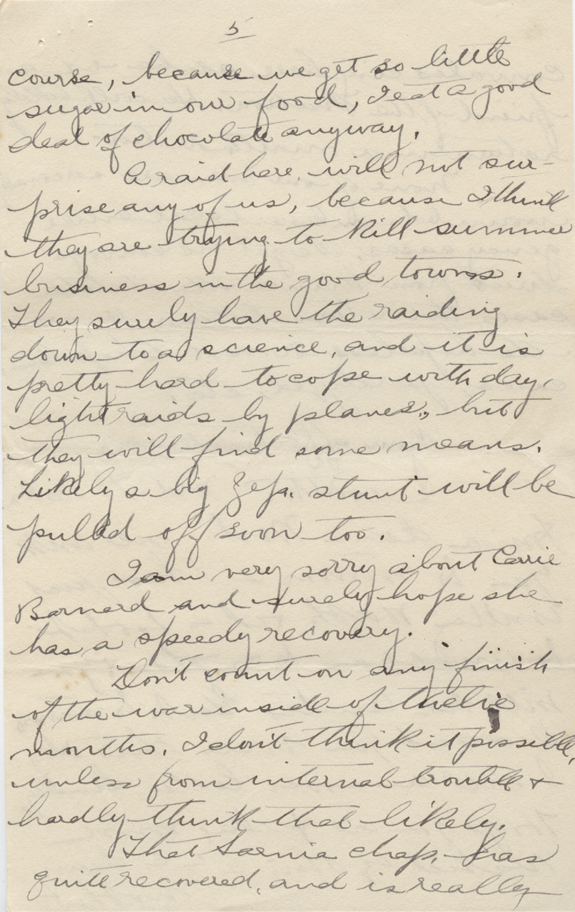 5
course, because we get so little
sugar in our food, I eat a good
deal of chocolate anyway.
A raid here will not sur-
prise any of us, because I think
they are trying to kill summer
business in the good towns.
They surely have the raiding
down to a science, and it is
pretty hard to cope with day,
light raids by planes, but
they will find some means.
Likely a big Zep. stunt will be
pulled off soon too.
I am very sorry about Carrie
Barnard and surely hope she
has a speedy recovery.
Don't count on any finish
of the war inside of twelve
months. I don't think it possible,
unless from internal trouble &
hardly think that likely.
That Sarnia chap. has
quite recovered, and is really